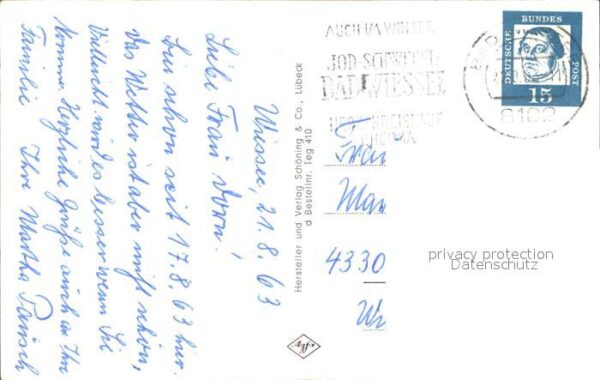 Wiessee, 21.8.63
Liebe Frau Dorn!
Bin schon seit 17.8.63 hier.
Das Wetter ist aber nicht schön,
Vielleicht wird es besser wenn Sie
kommen. Herzliche Grüße auch an Ihre
Familie Ihre Martha
Hersteller und Verlag Schöning & Co., Lübeck
d Bestellnr. Teg 410
AUCH IM WINTER
JOD-SCHWEFEL
BAD WIESSEE
HERZ KREISLAUF
RHEUMA
DEUTSCHE BUNDES POST
15
8182
Frau
4330
Agfa
privacy protection
Datenschutz